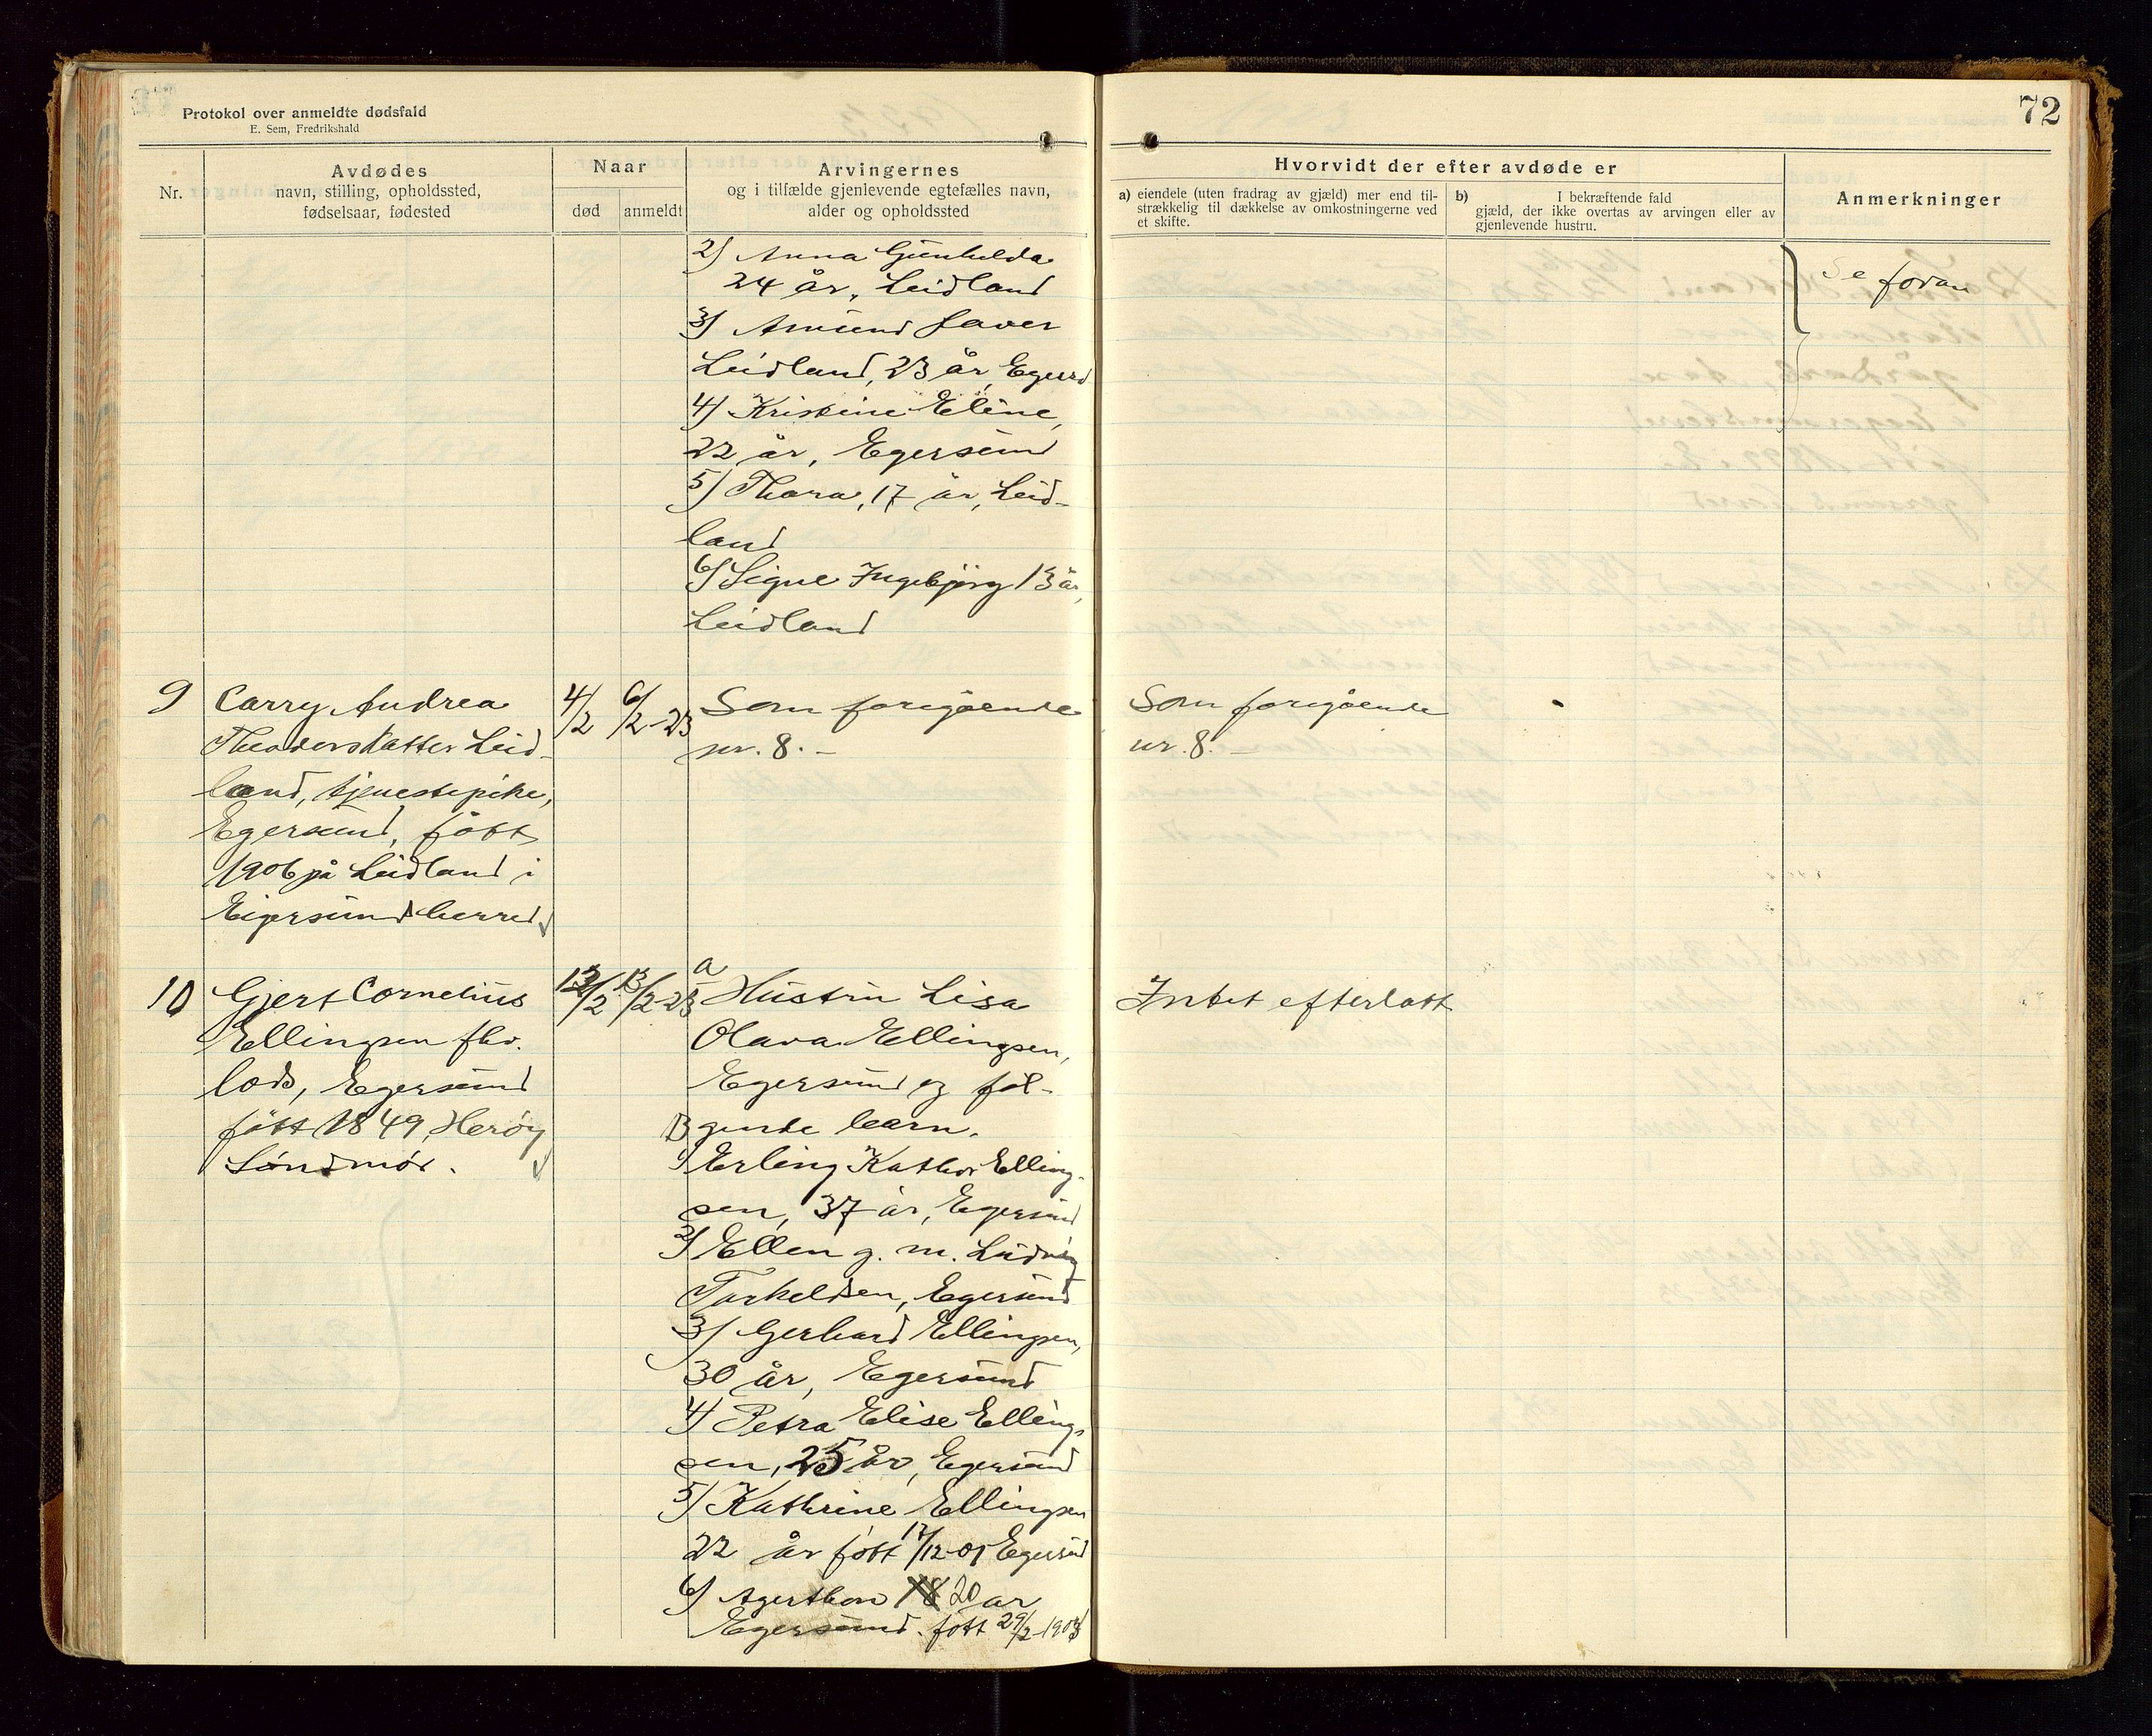 Protokol over anmeldte dødsfald
E. Sem, Fredrikshald
72
Nr.
Avdødes
navn, stilling, opholdssted,
fødselsaar, fødested
Naar
død
anmeldt
Arvingernes
og i tilfælde gjenlevende egtefælles navn,
alder og opholdssted
Hvorvidt der efter avdøde er
a) eiendele (uten fradrag av gjæld) mer end til-
strækkelig til dækkelse av omkostningerne ved
et skifte.
b) I bekræftende fald
gjæld, der ikke overtas av arvingen eller av
gjenlevende hustru.
Anmerkninger
2) Anna Gunhilda
24 år, Leidland
3) Amund Saver
Leidland, 23 år, Egersd
4) Kristine Eline,
22 år, Egersund
5) Thora, 17 år, Leid-
land
6) Signe Ingebjørg 13 år,
Leidland
Se foran
9
Carry Andrea
Theodorsdatter Leid-
land, tjenestepike,
Egersund, født
1906 på Leidland i
Eigersund herred
4/2
6/2-23
Som foregående
nr. 8. -
Som foregående
nr. 8. -
10
Gjert Cornelius
Ellingsen fhv.
lods, Egersund
født 1849, Herøy
Søndmør.
13/2
13/2-23
a
Hustru Lisa
Olava Ellingsen,
Egersund og føl-
B gende barn.
1) Erling Ellings-
sen, 37 år, Egersund
2) Ellen g. m. Ludvig
Torkeldsen, Egersund
3) Gerhard Ellingsen,
30 år, Egersund
4) Petra Elise Ellings-
sen, 25 år, Egersund
5) Kathrine Ellingsen
22 år født 17/12-01 Egersund
6) 18 20 år
Egersund. født 29/2-1903
Intet efterlatt